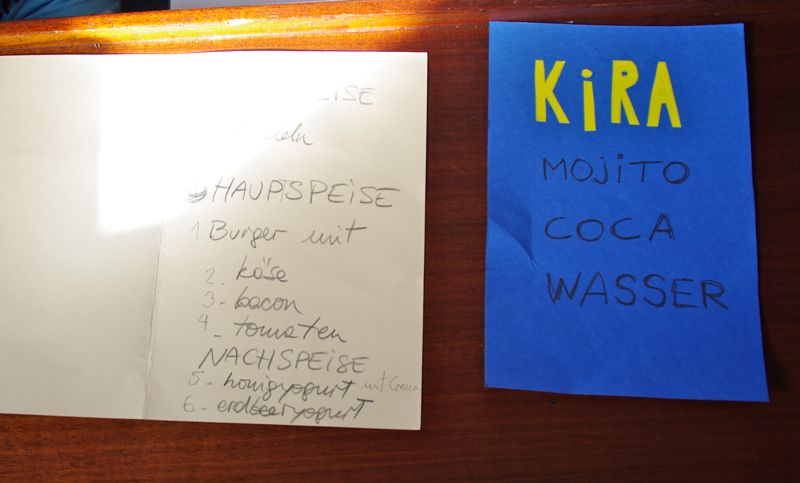 HAUPTSPEISE
1 Burger mit
2- käse
3- bacon
4- tomaten
NACHSPEISE
5- honigyogurt mit
6- erdbeeryogurt
KiRA
MOJiTO
COCA
WASSER